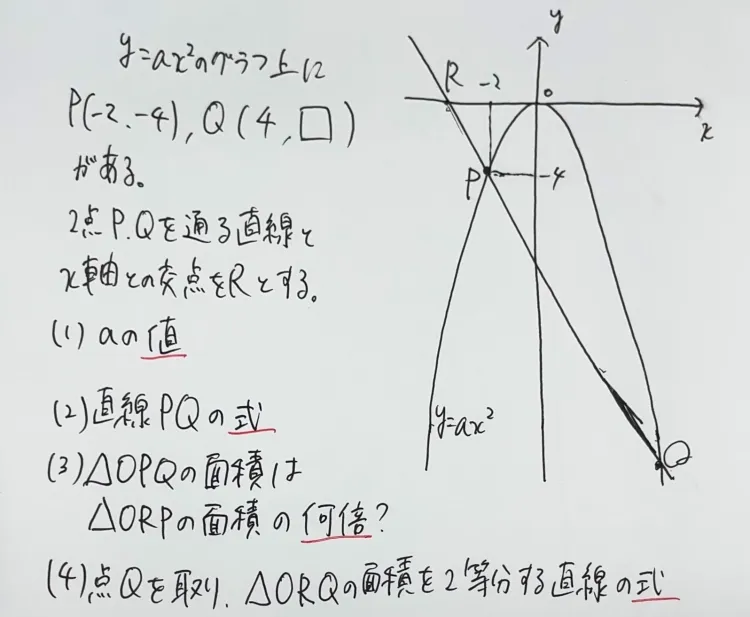 y=ax²のグラフ上に
P(-2、-4), Q(4,□)
がある。
2点P.Qを通る直線と
x軸との交点をRとする。
(1) aの値
(2)直線PQの式
(3)△OPQの面積は
△ORPの面積の何倍?
(4)点Qを取り、△ORQの面積を2等分する直線の式
y
R
-2
o
x
P
-4
y=ax²
Q